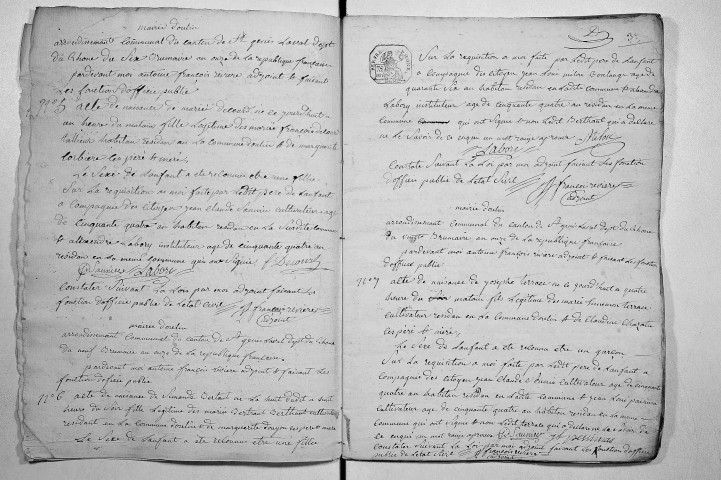 mairie doulin
arrondinement Communal du canton de St genis Laval dept
du Rhone du Six Brumaire an onze de la republique françaine
pardevant moi antoine françois reviere adjoint & faisant
Les fonction d'office public
N° 5 acte de naisance de marie decour née ce jourdhui a
un heure du matoin fille Legitime des mariée françois decour
habitan residan en La Commune doulin & de marguerite
Corbiere Ces pere & mere
Le Sexe de Lanfant a ete reconnu etre une fille
Sur La requisition a moi faite par Ledit pere de Lanfant
a Compagnie des Citoyen jean Claude Saunier Cultivateur age
de Cinquante quatre an habitan residan en La Susdite Commune
& alexandre Labory instituteur age de cinquante quatre an
residan en La meme Commune qui ont Signé
Saunier Labory
Constater Suivant La Loi par moi adjoint faisant les
fonction d'officer public de Letat Civil françois reviere
adjoint
mairie doulin
arrondinement Communal du canton de St genis Laval dept du Rhone
du neuf Brumaire an onze de la republique françain
pardevant moi antoine françois reviere adjoint & faisant Les
fonction doficier public
N° 6 acte de naisance de Bertaut née La nuit dudit a huit
heure du Soir fille Legitime des marie Bertraut Berthaut cultivateur
residant en La Commune doulin & de marguerite doyon ces pere & mere
Le Sexe de Lanfant a ete reconnu etre une fille
3
Sur La requisition a moi faite par Ledit pere de Lanfant
a Compagnie des Citoyen jean Louis age de
quarante six an habitan residan en Ladite Commune & alexandre
Labory instituteur age de Cinquante quatre an residan en La meme
Commune qui ont Signé & non Ledit Berthaut qui a declare
ne Le Savoir de ce enquis un mot rayé aprouvé
Labory
Constaté Suivant La Loi par moi adjoint faisant Les fonction
d'officer public de Letat Civil françois reviere
adjoint
mairie doulin
arrondinement Communal du Canton de St genis Laval dept du Rhone
du vingt Brumaire an onze de la republique françaine
pardevant moi antoine françois reviere adjoint & faisant Les fonction
d'officier public
N° 7 acte de naisance de josephe terrace né ce jourdhui a quatre
heure du matoin fils Legitime des marié terrace
Cultivateur residan en La Commune doulin & de Claudine
Ces pere & mere
Le Sexe de Lanfant a ete reconnu etre un garcon
Sur La requisition a moi faite par Ledit pere de Lanfant a
Compagnie des Citoyen jean Claude Saunier Cultivateur age de cinquante
quatre an habitan residan en Ladite Commune & jean Louis
Cultivateur age de Cinquante quatre an residan en La meme
Commune qui ont Signé & non Ledit terrace qui a declare ne Le Savoir de
ce enquis un mot rayé aprouvé Saunier
Constater Suivant La Loi par moi adjoint faisant Les fonction d'officer
public de Letat Civil françois reviere
adjoint